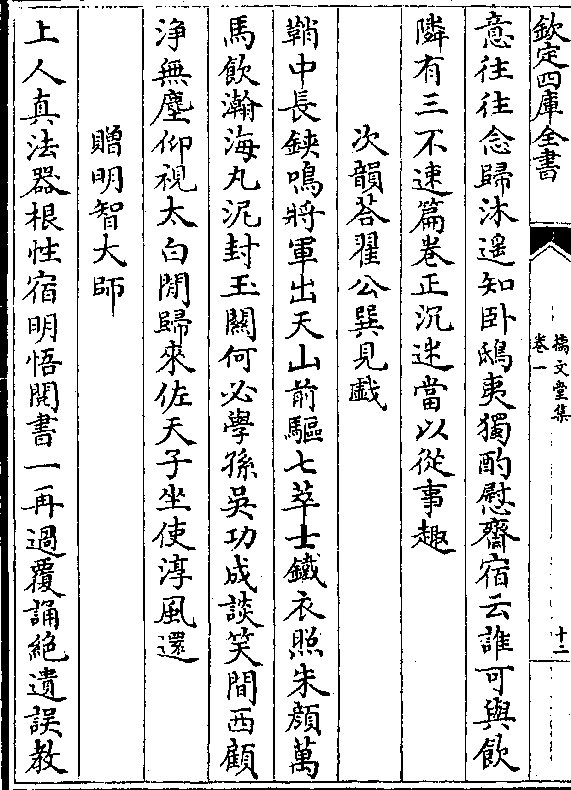 欽定四庫全書
摛文堂集
卷一
十二
意往往念歸沐遥知卧鴟夷獨酌慰齋宿云誰可與飲
隣有三不速篇卷正沉迷當以從事趣
次韻荅翟公巽見戱
鞘中長鋏鳴將軍出天山前驅七萃士鐵衣照朱顔萬
馬飲瀚海丸泥封玉關何必學孫吳功成談笑間西顧
浄無塵仰視太白閒歸來佐天子坐使淳風還
贈明智大師
上人真法器根性宿明悟閱書一再過覆誦絶遺誤教